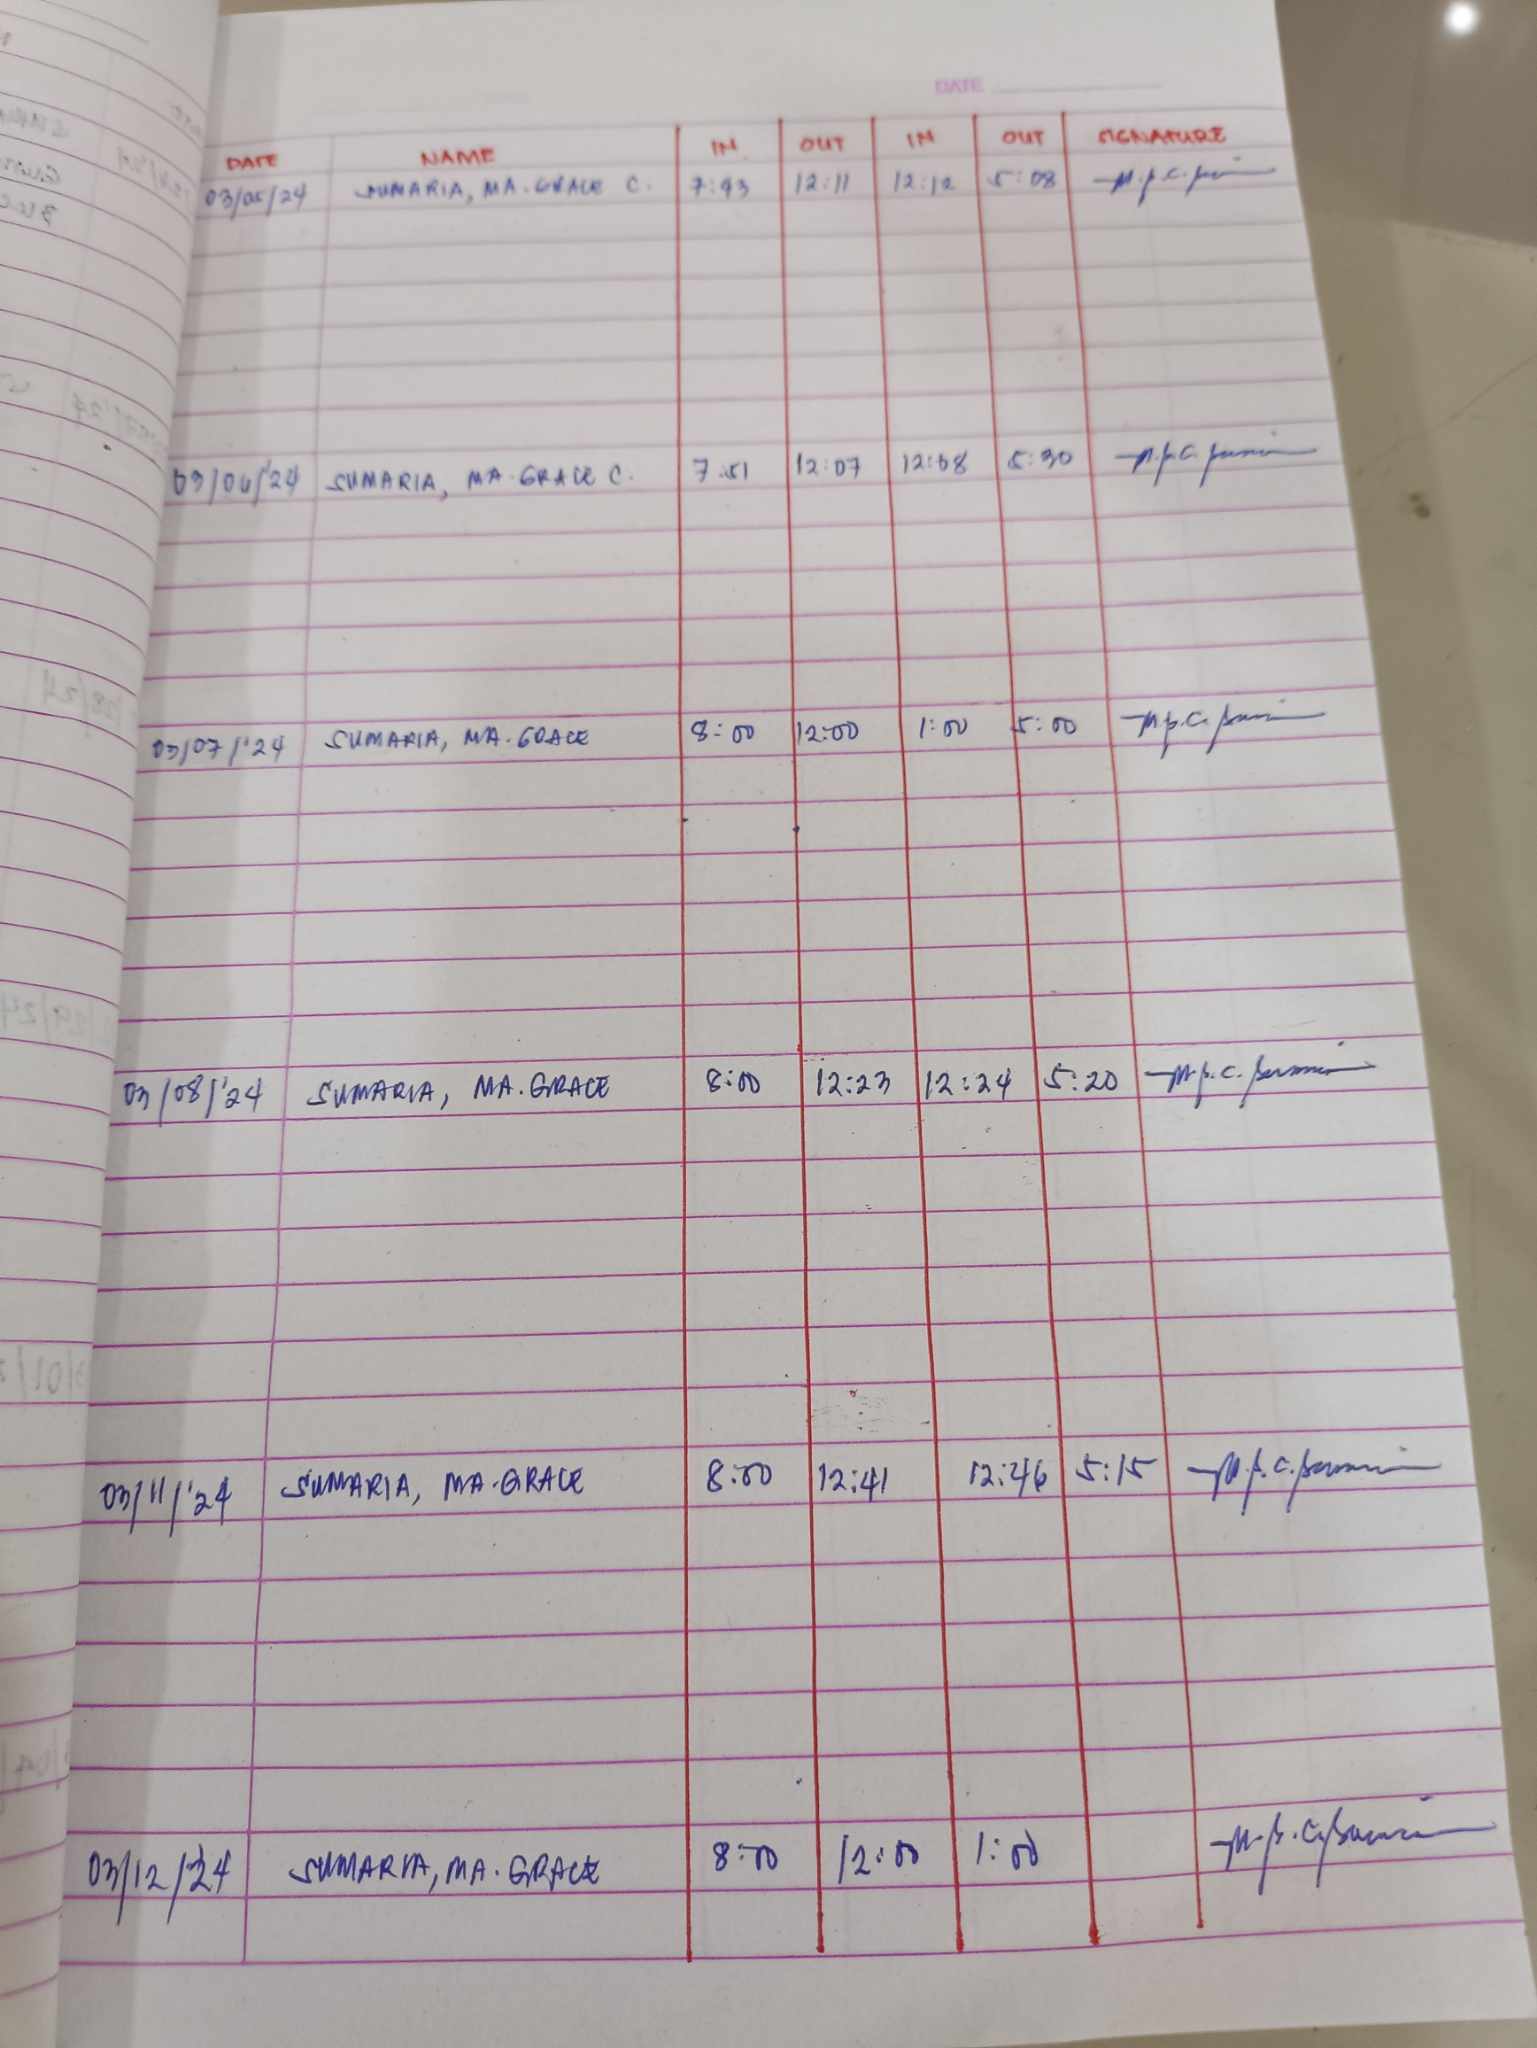 DATE
DATE NAME IN OUT IN OUT SIGNATURE
03/05/24 SUMARIA, MA. GRACE C. 7:43 12:11 12:12 5:08
03/06/'24 SUMARIA, MA. GRACE C. 7:51 12:07 12:08 5:30
03/07/'24 SUMARIA, MA. GRACE 8:00 12:00 1:00 5:00
03/08/'24 SUMARIA, MA. GRACE 8:00 12:23 12:24 5:20
03/11/'24 SUMARIA, MA. GRACE 8:00 12:41 12:46 5:15
03/12/'24 SUMARIA, MA. GRACE 8:00 12:00 1:00